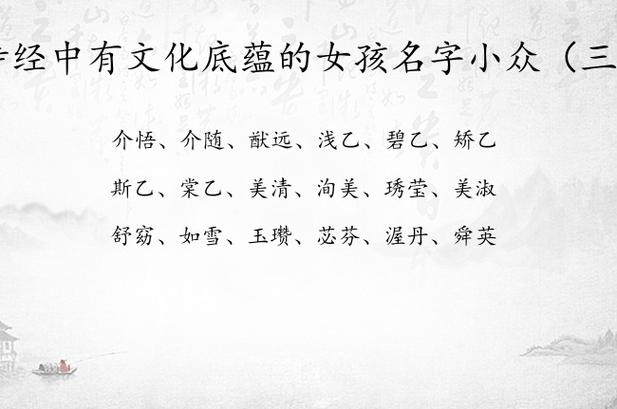 经中有文化底蕴的女孩名字小众（三
介悟、介随、猷远、浅乙、碧乙、矫乙
斯乙、棠乙、美清、洵美、琇莹、美淑
舒窈、如雪、玉瓒、苾芬、渥丹、舜英